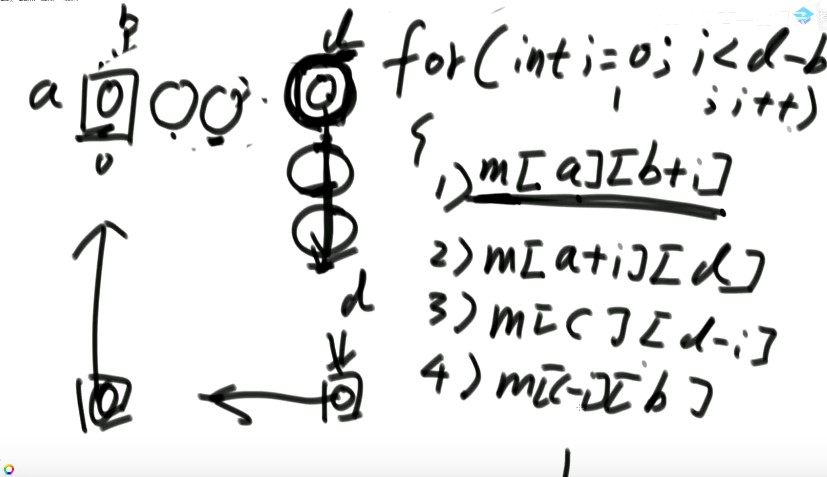 b
d
a 0
0
for(int i=0; i<d-b
1
; i++)
{
1) m[a][b+i]
2) m[a+i][d]
3) m[c][d-i]
4) m[c-i][b]
d